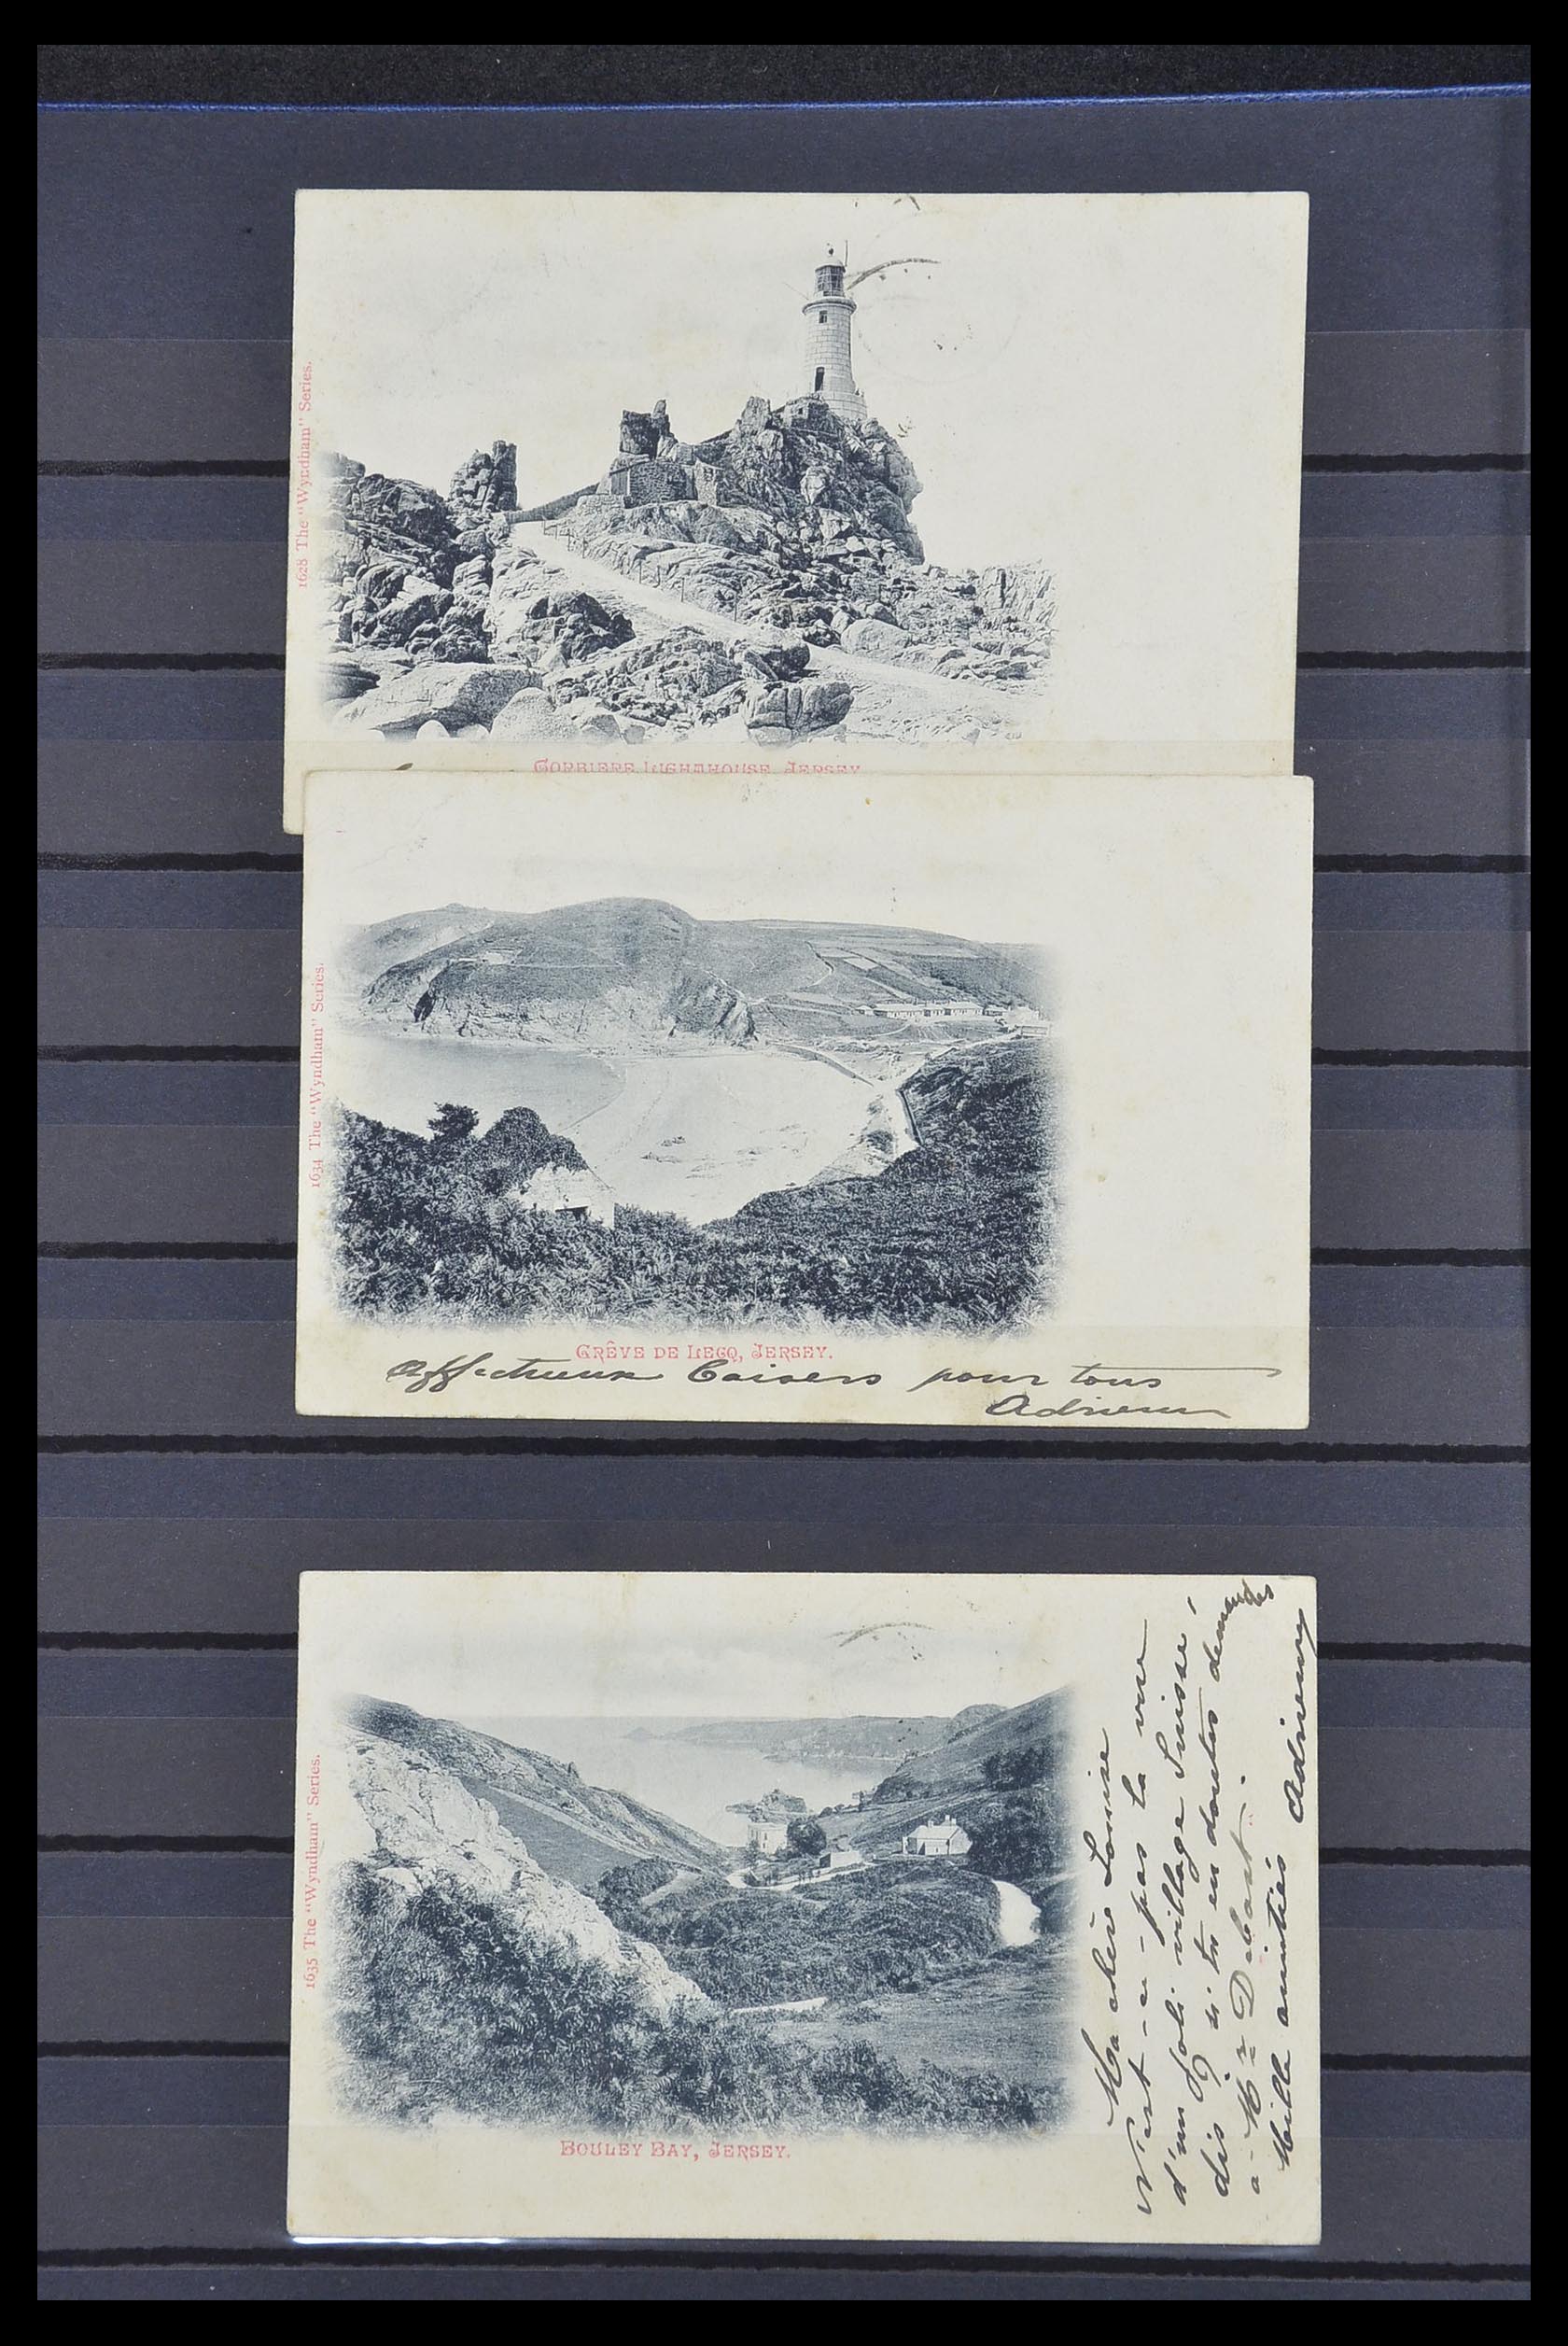 1628 The "Wyndham" Series.
CORBIERE LIGHTHOUSE, JERSEY.
1634 The "Wyndham" Series.
GRÊVE DE LECQ, JERSEY.
Affectueux baisers pour tous
Adrienne
1635 The "Wyndham" Series.
BOULEY BAY, JERSEY.
Ma chère Louise
N'est-ce-pas la vue
d'un joli village Suisse!
dis si tu en doutes demandes
a - Mr
Mille amitiés Adrienne